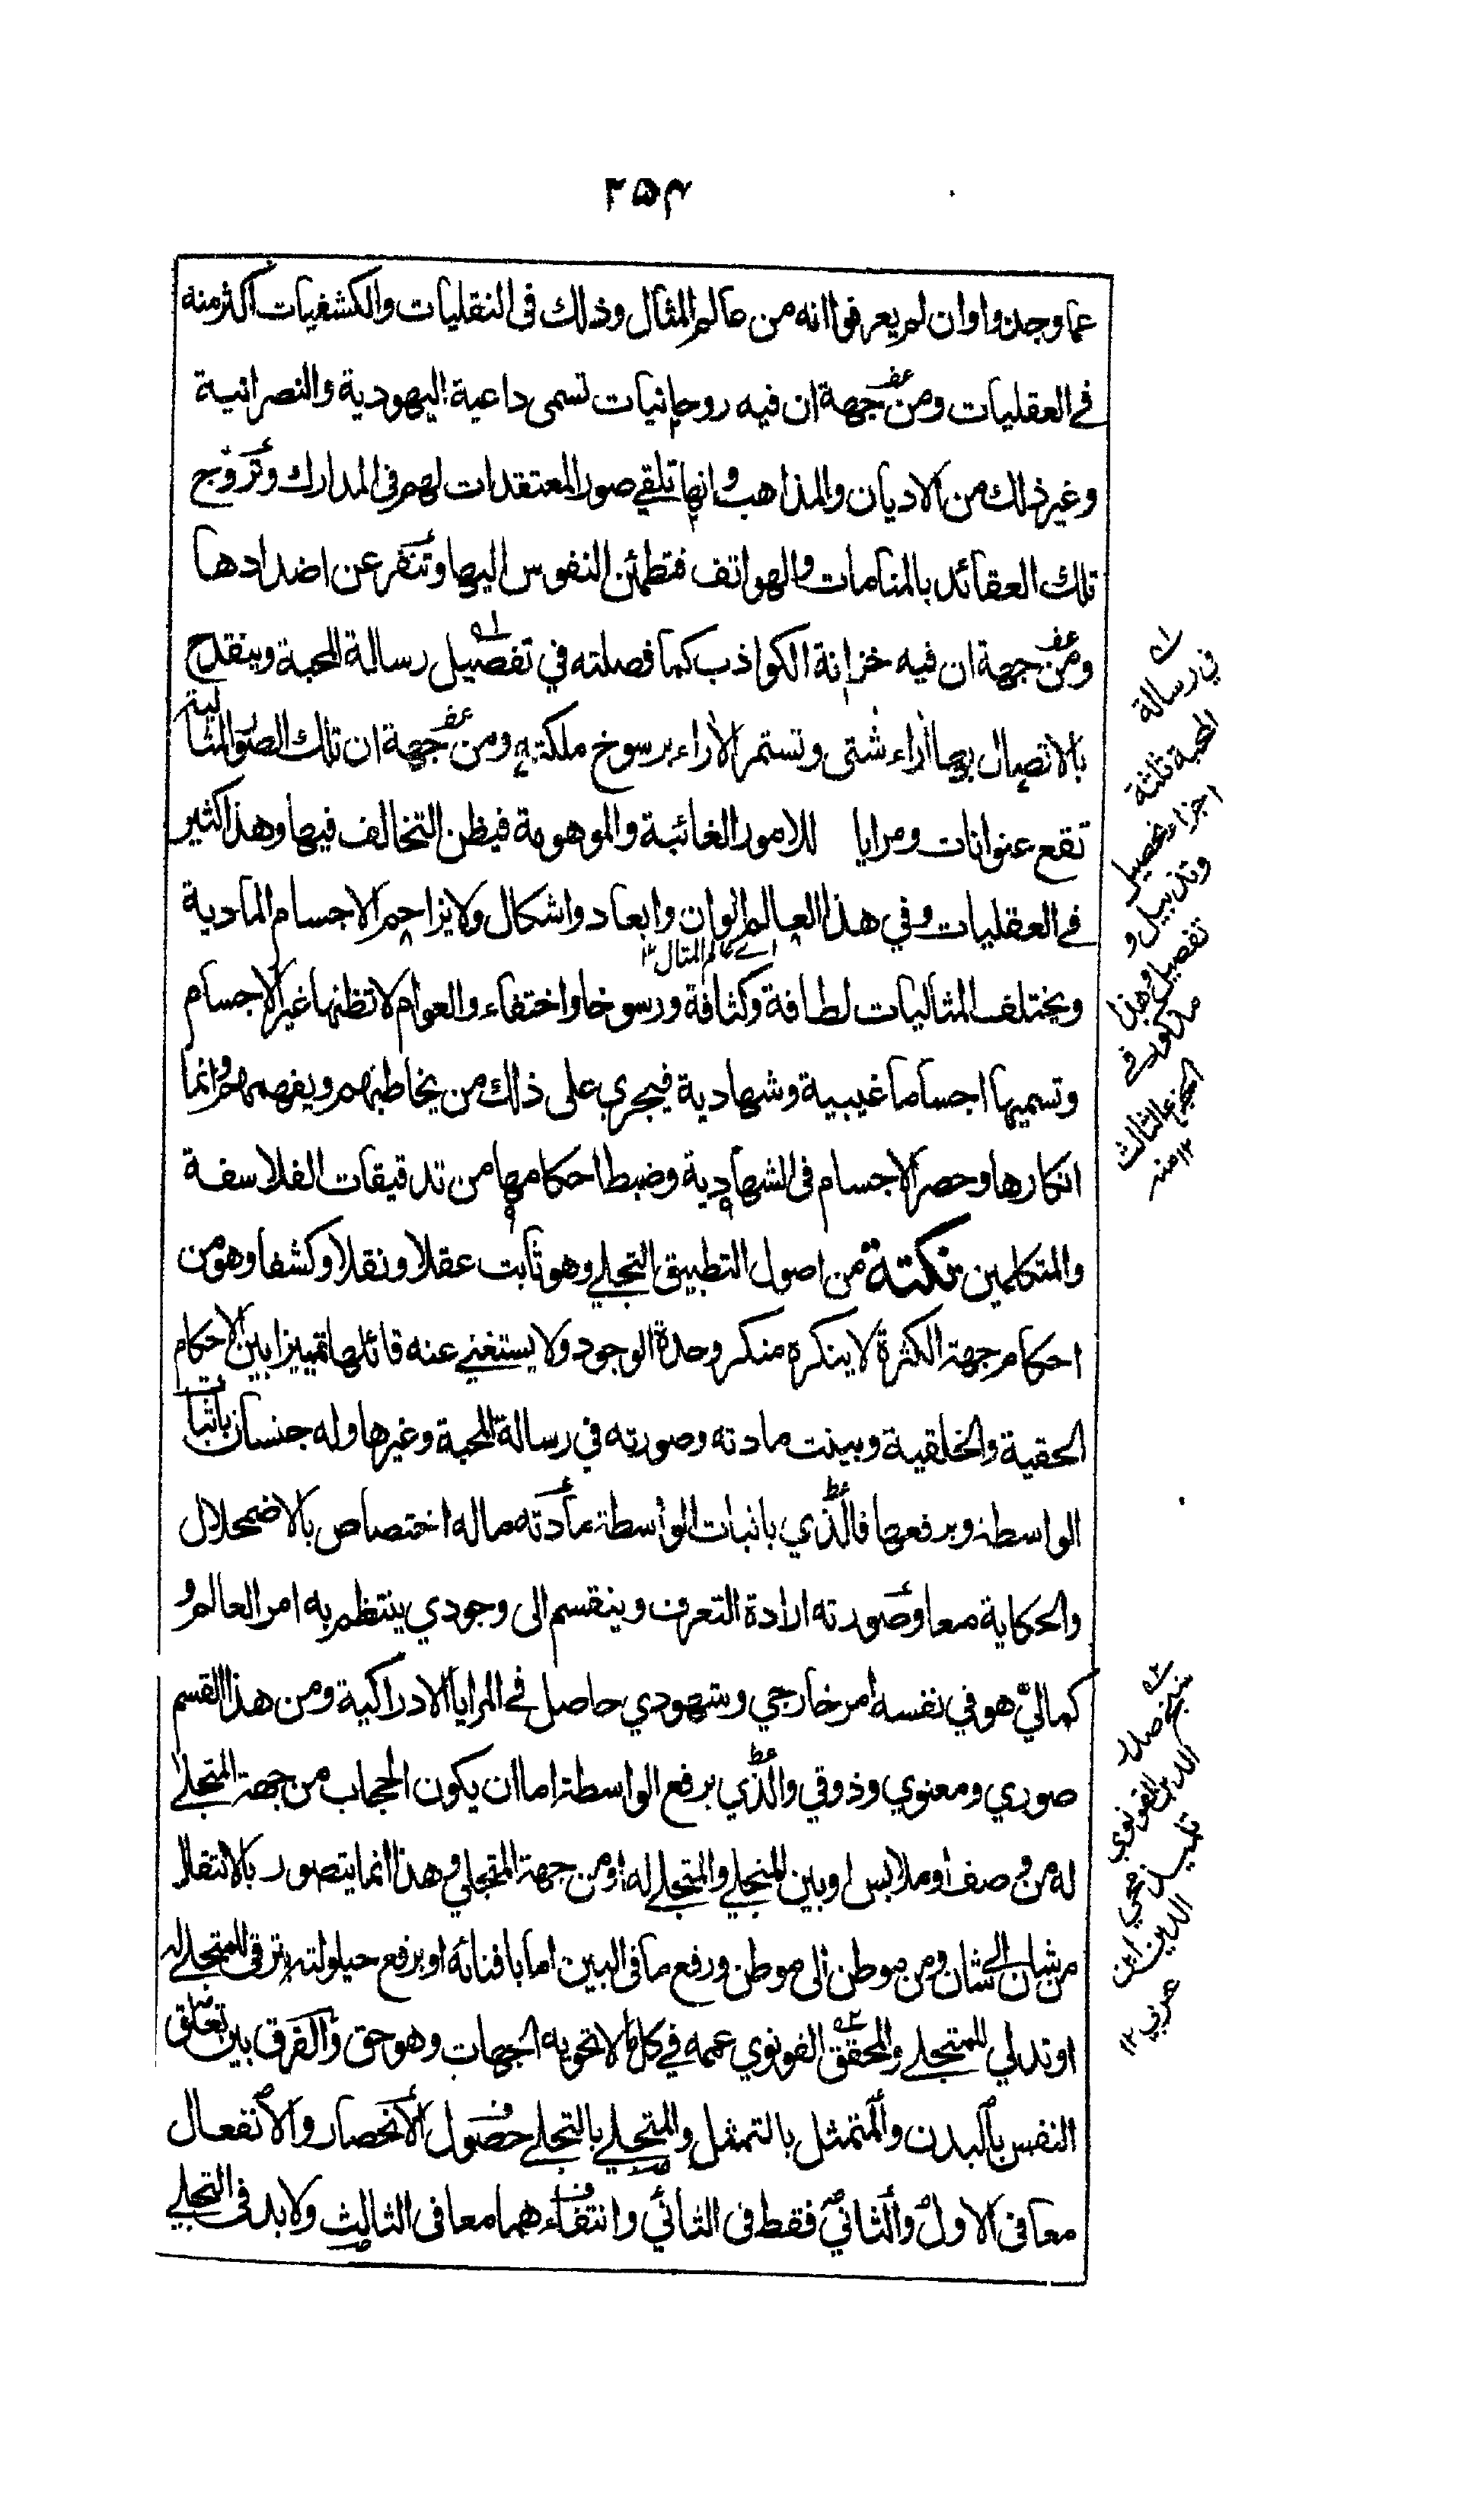 ۲۵۴
عما وجدوا وان لم يعرفوا انه من عالم المثال وذلك فى النقليات والكشفيات اكثر منه
في العقليات ومن جهة ان فيه روحانيات تسمى داعية اليهودية والنصرانية
وغير ذلك من الاديان والمذاهب وانها تلقي صور المعتقدات لهم فى المدارك وتروج
تلك العقائد بالمنامات والهواتف فتطمئن النفوس اليها وتنفر عن اضدادها
ومن جهة ان فيه خزانة الكواذب كما فصلته في تفصيل رسالة المحبة وينقدح
بالاتصال بها أراء شتى وتستمر الأراء برسوخ ملكته ومن جهة ان تلك الصور المثالية
تقع عنوانات ومرايا للامور الغائبة والموهومة فيظن التخالف فيها وهذا كثير
في العقليات وفي هذا العالم الوان وابعاد واشكال ولا يزاحم الاجسام المادية
اے عالم المثال ۱۲
ويختلف المثاليات لطافة وكثافة ورسوخا واختفاء والعوام لا تظنها غير الاجسام
وتسميها اجساما غيبية وشهادية فيجري على ذلك من يخاطبهم ويفهمهم وانما
انكارها وحصر الاجسام فى الشهادية وضبط احكامها من تدقيقات الفلاسفة
والمتكلمين نكتة من اصول التطبيق التجلي وهو ثابت عقلا ونقلا وكشفا وهو من
احكام جهة الكثرة لا ينكره منكر وحدة الوجود ولا يستغني عنه قائلها تمييزا بين الاحكام
الحقية والخلقية وبينت مادته وصورته في رسالة المحبة وغيرها وله جنسان باثبات
الواسطة وبرفعها فالذي باثبات الواسطة مادته ماله اختصاص بالاضمحلال
والحكاية معا وصورته ارادة التعرف وينقسم الى وجودي ينتظم به امر العالم و
كمالي هو في نفسه امر خارجي وشهودي حاصل في المرايا الادراكية ومن هذا القسم
صوري ومعنوي وذوقي والذي برفع الواسطة اما ان يكون الحجاب من جهة المتجلى
له من وصف او ملابس او بين المتجلي والمتجلى له او من جهة المتجلي وهذا انما يتصور بالانتقال
من شان الى شان ومن موطن الى موطن ورفع ما فى البين اما بافنائه او برفع حيلولته بترقي المتجلى له
او تدلي المتجلي والمحقق القونوي عممه في كل ما لا تحويه الجهات وهو حق والفرق بين تعلق
النفس بالبدن والمتمثل بالتمثل والمتجلي بالتجلي حصول الانحصار والانفعال
معا فى الاول والثاني فقط فى الثاني وانتفاءهما معا فى الثالث ولا بد فى التجلي
في رسالة
المحبة ثلثة
اجزاء تحصيل
وتذييل و
تفصيل وهذا
مذكور في
الجزء الثالث
۱۲ منه
شيخ صدر
الدين القونوي
تلميذ محي
الدين ابن
عربي ۱۲